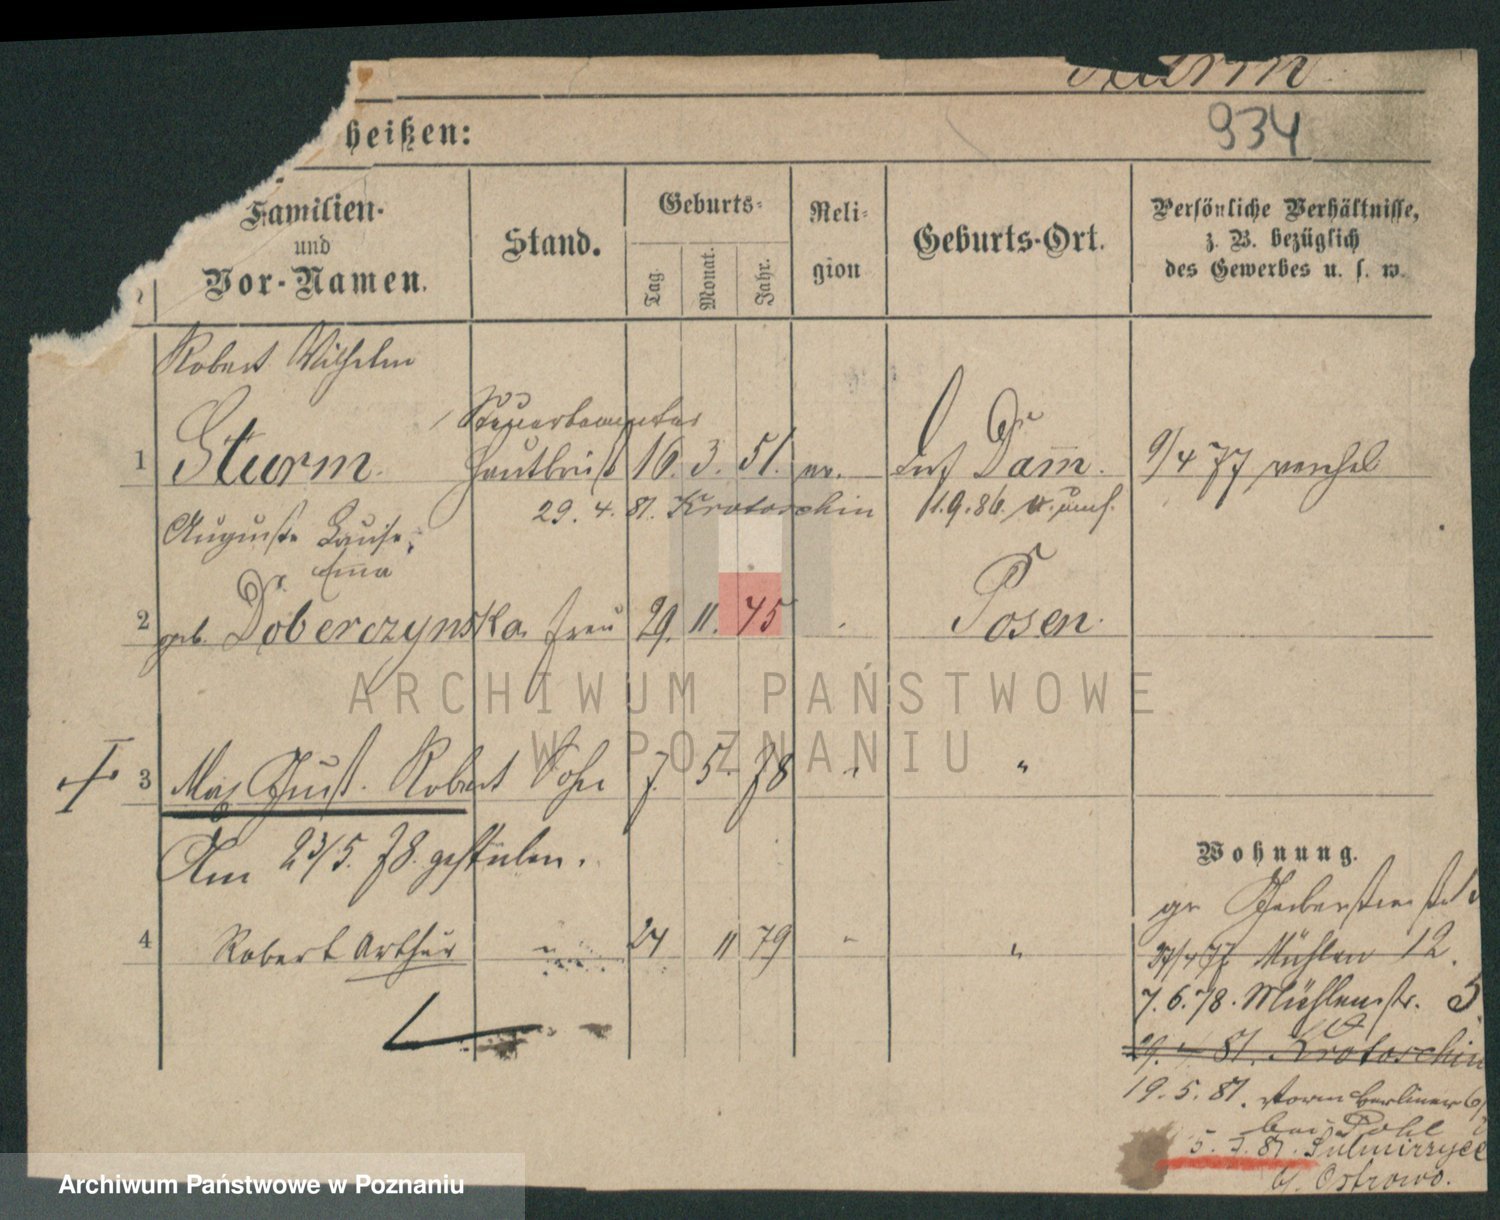 Sturm
934
heißen:
Familien-
und
Vor-Namen.
Stand.
Geburts-
Tag.
Monat.
Jahr.
Reli-
gion
Geburts-Ort.
Persönliche Verhältnisse,
z. B. bezüglich
des Gewerbes u. s. w.
Robert Wilhelm
1 Sturm 16. 3. 51. ev. Damm. 9/4 77
29. 4. 81. Krotoschin 1.9.86
Auguste Louise
Emma
2 geb. Doberczynska Frau 29. 11. 45 Posen.
3 Max Gust. Robert Sohn 7. 5. 78 "
Am 23/5. 78. gestorben.
4 Robert Arthur 24 11 79 "
Wohnung.
gr Gerberstr
27/4 77 Mühlen 12.
7.6.78. Mühlenstr. 5.
29. 4 81. Krotoschin
19. 5. 81. Berliner
bei Pohl
5. 7. 81. Sulmirzyce
b/ Ostrowo.
ARCHIWUM PAŃSTWOWE
W POZNANIU
Archiwum Państwowe w Poznaniu